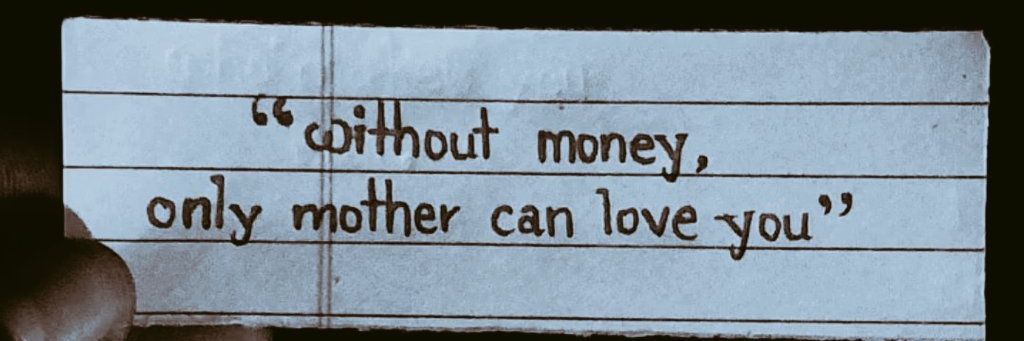 “without money,
only mother can love you”